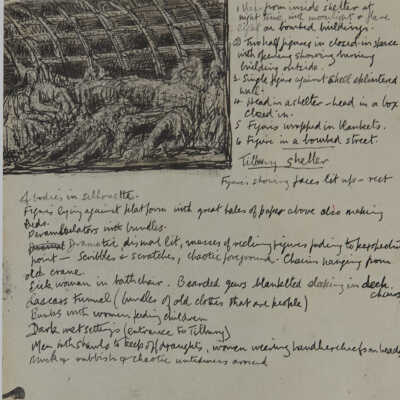 1 View from inside shelter at
night time with moonlight & flare
light on bombed buildings.
2 Two half figures in closed in space
with opening showing burning
building outside.
3 Single figure against splintered
wall.
4 Head in a shelter - head in a box
closed in.
5 Figures wrapped in blankets.
6 Figure in a bombed street.
Tilbury shelter
Figures showing faces lit up - rest
of bodies in silhouette.
Figures lying against platform with great bales of paper above also making
beds.
Perambulators with bundles.
Dramatic dismal lit, masses of reclining figures fading to perspective
point — Scribbles & scratches, chaotic foreground. Chains hanging from
old crane.
Sick woman in bathchair. Bearded Jews blanketed sleeping in deck
chairs
Lascars Tunnel (bundles of old clothes that are people)
Bunks with women feeding children
Dark wet settings (entrance to Tilbury)
Men with shawls to keep off draughts, women wearing handkerchiefs on heads
Muck & rubbish & chaotic untidiness around